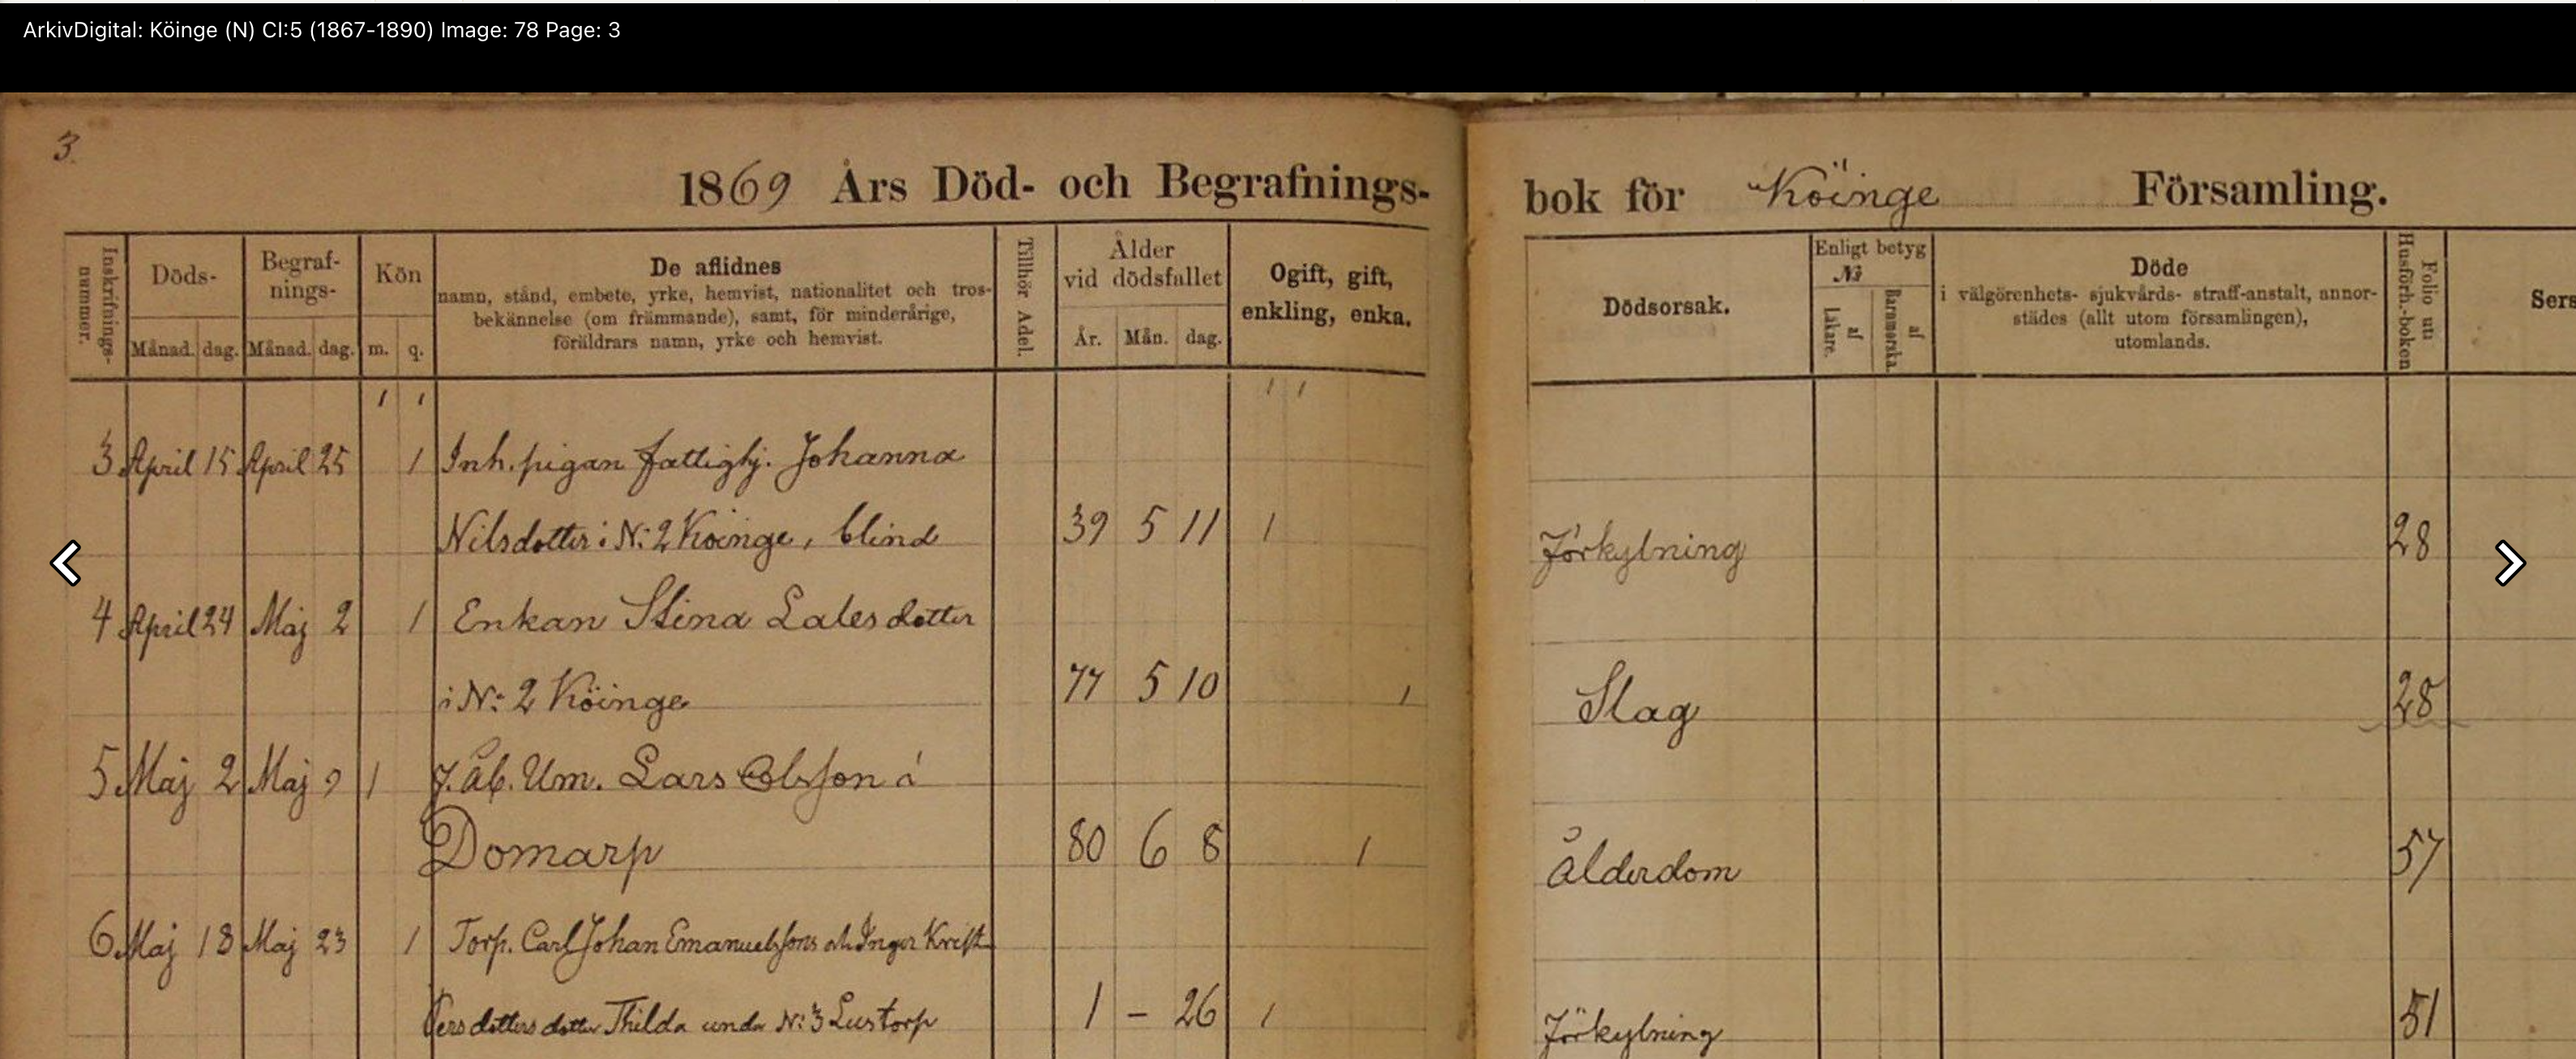 ArkivDigital: Köinge (N) CI:5 (1867-1890) Image: 78 Page: 3
3
1869 Års Död- och Begrafnings-
bok för Köinge Församling.
Inskrifnings-
nummer.
Döds-
Månad. dag.
Begraf-
nings-
Månad. dag.
Kön
m. q.
De aflidnes
namn, stånd, embete, yrke, hemvist, nationalitet och tros-
bekännelse (om främmande), samt, för minderårige,
föräldrars namn, yrke och hemvist.
Tillhör Adel.
Ålder
vid dödsfallet
År. Mån. dag.
Ogift, gift,
enkling, enka.
Dödsorsak.
Enligt betyg
No
af
Läkare.
af
Barnmorska.
Döde
i välgörenhets- sjukvårds- straff-anstalt, annor-
städes (allt utom församlingen),
utomlands.
Folio uti
Husförh.-boken
Sers
1 1 1 1
3. April 15 April 25 1 Inh. pigan fattighj. Johanna
Nilsdotter i N: 2 Köinge, blind 39 5 11 1 Förkylning 28
4 April 24 Maj 2 1 Enkan Stina Lalesdotter
i N: 2 Köinge 77 5 10 1 Slag 28
5. Maj 2 Maj 9 1 f. åb. Um. Lars Olsson i
Domarp 80 6 8 1 Ålderdom 57
6. Maj 18 Maj 23 1 Torp. Carl Johan Emanuelssons och Inger Krist
Persdotters dotter Thilda under N: 3 Lustorp 1 - 26 1 Förkylning 51